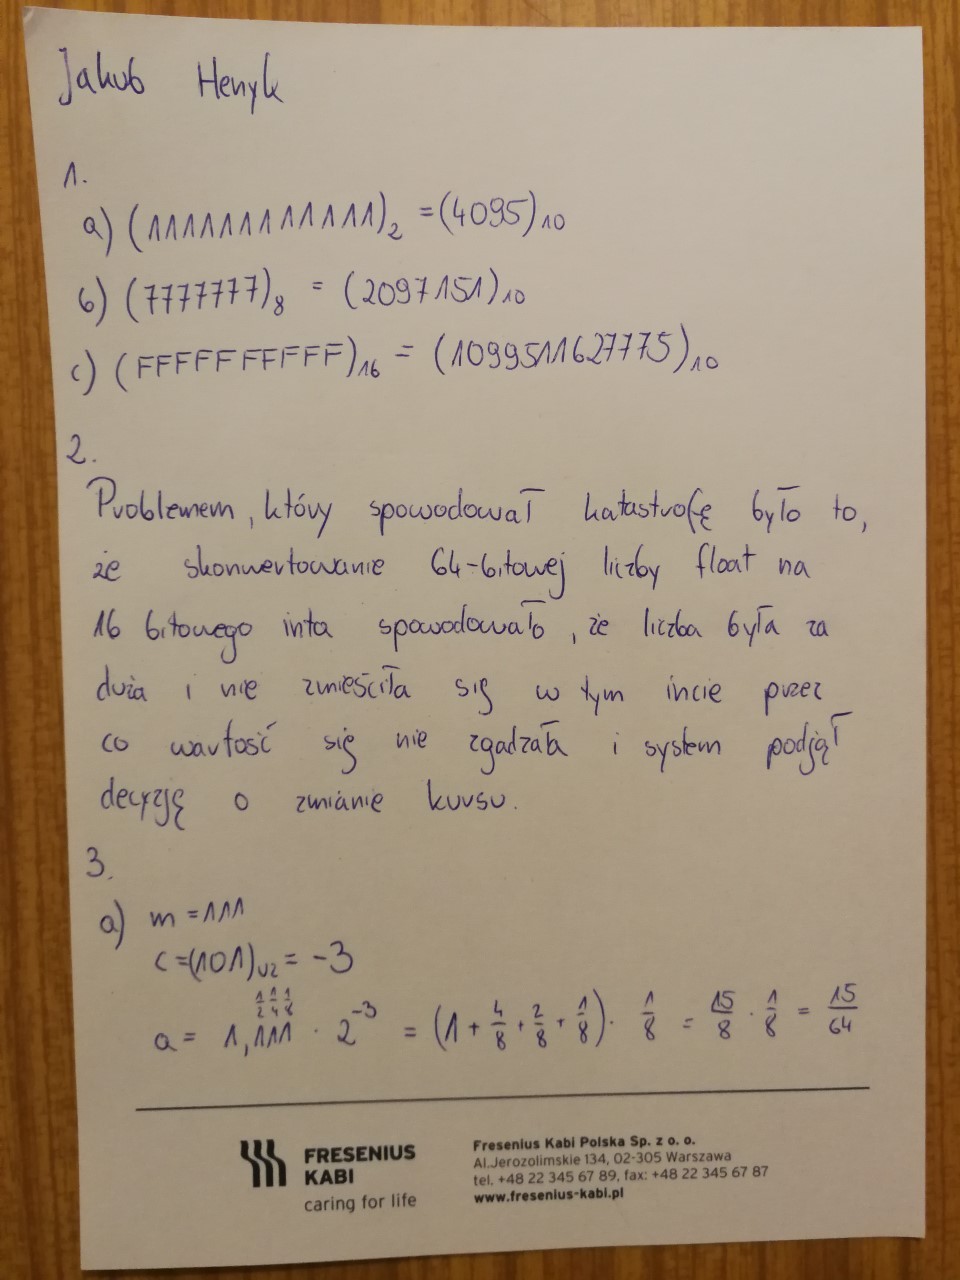 Jakub Henyk
1.
a) (111111111111)₂ = (4095)₁₀
b) (7777777)₈ = (2097151)₁₀
c) (FFFFFFFFFF)₁₆ = (1099511627775)₁₀
2.
Problemem, który spowodował katastrofę było to,
że skonwertowanie 64-bitowej liczby float na
16 bitowego inta spowodowało, że liczba była za
duża i nie zmieściła się w tym incie przez
co wartość się nie zgadzała i system podjął
decyzję o zmianie kursu.
3.
a) m = 111
c = (101)U2 = -3
1/2 1/4 1/8
a = 1,111 · 2⁻³ = (1 + 4/8 + 2/8 + 1/8) · 1/8 = 15/8 · 1/8 = 15/64
FRESENIUS
KABI
caring for life
Fresenius Kabi Polska Sp. z o. o.
Al.Jerozolimskie 134, 02-305 Warszawa
tel. +48 22 345 67 89, fax: +48 22 345 67 87
www.fresenius-kabi.pl